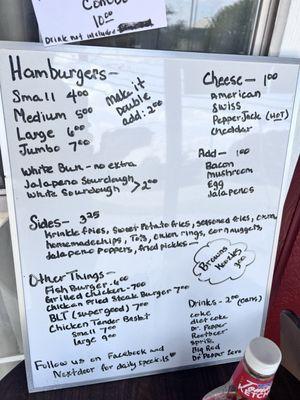 Combo
10.00
Drink not included
Hamburgers -
Small 4.00
Medium 5.00
Large 6.00
Jumbo 7.00
make it
Double
add: 2.00
White Bun - no extra
Jalapeno Sourdough
White Sourdough > 2.00
Cheese - 1.00
American
Swiss
Pepper Jack (HOT)
Cheddar
Add - 1.00
Bacon
Mushroom
Egg
Jalapenos
Sides - 3.25
Krinkle fries, Sweet Potato fries, seasoned fries,
homemade chips, Tots, Onion rings, corn nuggets,
Jalapeno poppers, fried pickles
Brownie
3.00
Other Things -
Fish Burger - 6.00
Grilled Chicken - 7.00
Chicken Fried Steak Burger 7.00
BLT (super good) 7.00
Chicken Tender Basket
Small 7.00
large 9.00
Drinks - 2.00 (cans)
coke
diet coke
Dr. Pepper
Rootbeer
Sprite
Big Red
Dr Pepper Zero
Follow us on Facebook and
Nextdoor for daily specials